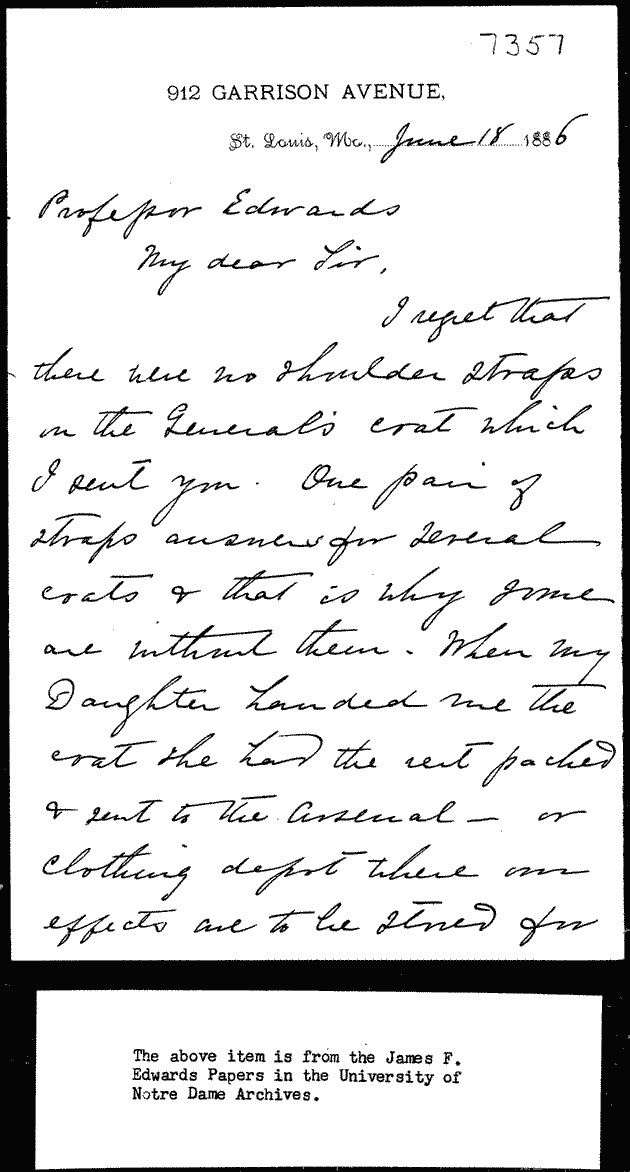 7357
912 GARRISON AVENUE,
St. Louis, Mo., June 18 1886
Professor Edwards
My dear Sir,
I regret that
there were no shoulder straps
on the General's coat which
I sent you. One pair of
straps answers for several
coats & that is why some
are without them. When my
Daughter handed me the
coat she had the rest packed
& sent to the Arsenal — or
clothing depot where our
effects are to be stored for
The above item is from the James F.
Edwards Papers in the University of
Notre Dame Archives.